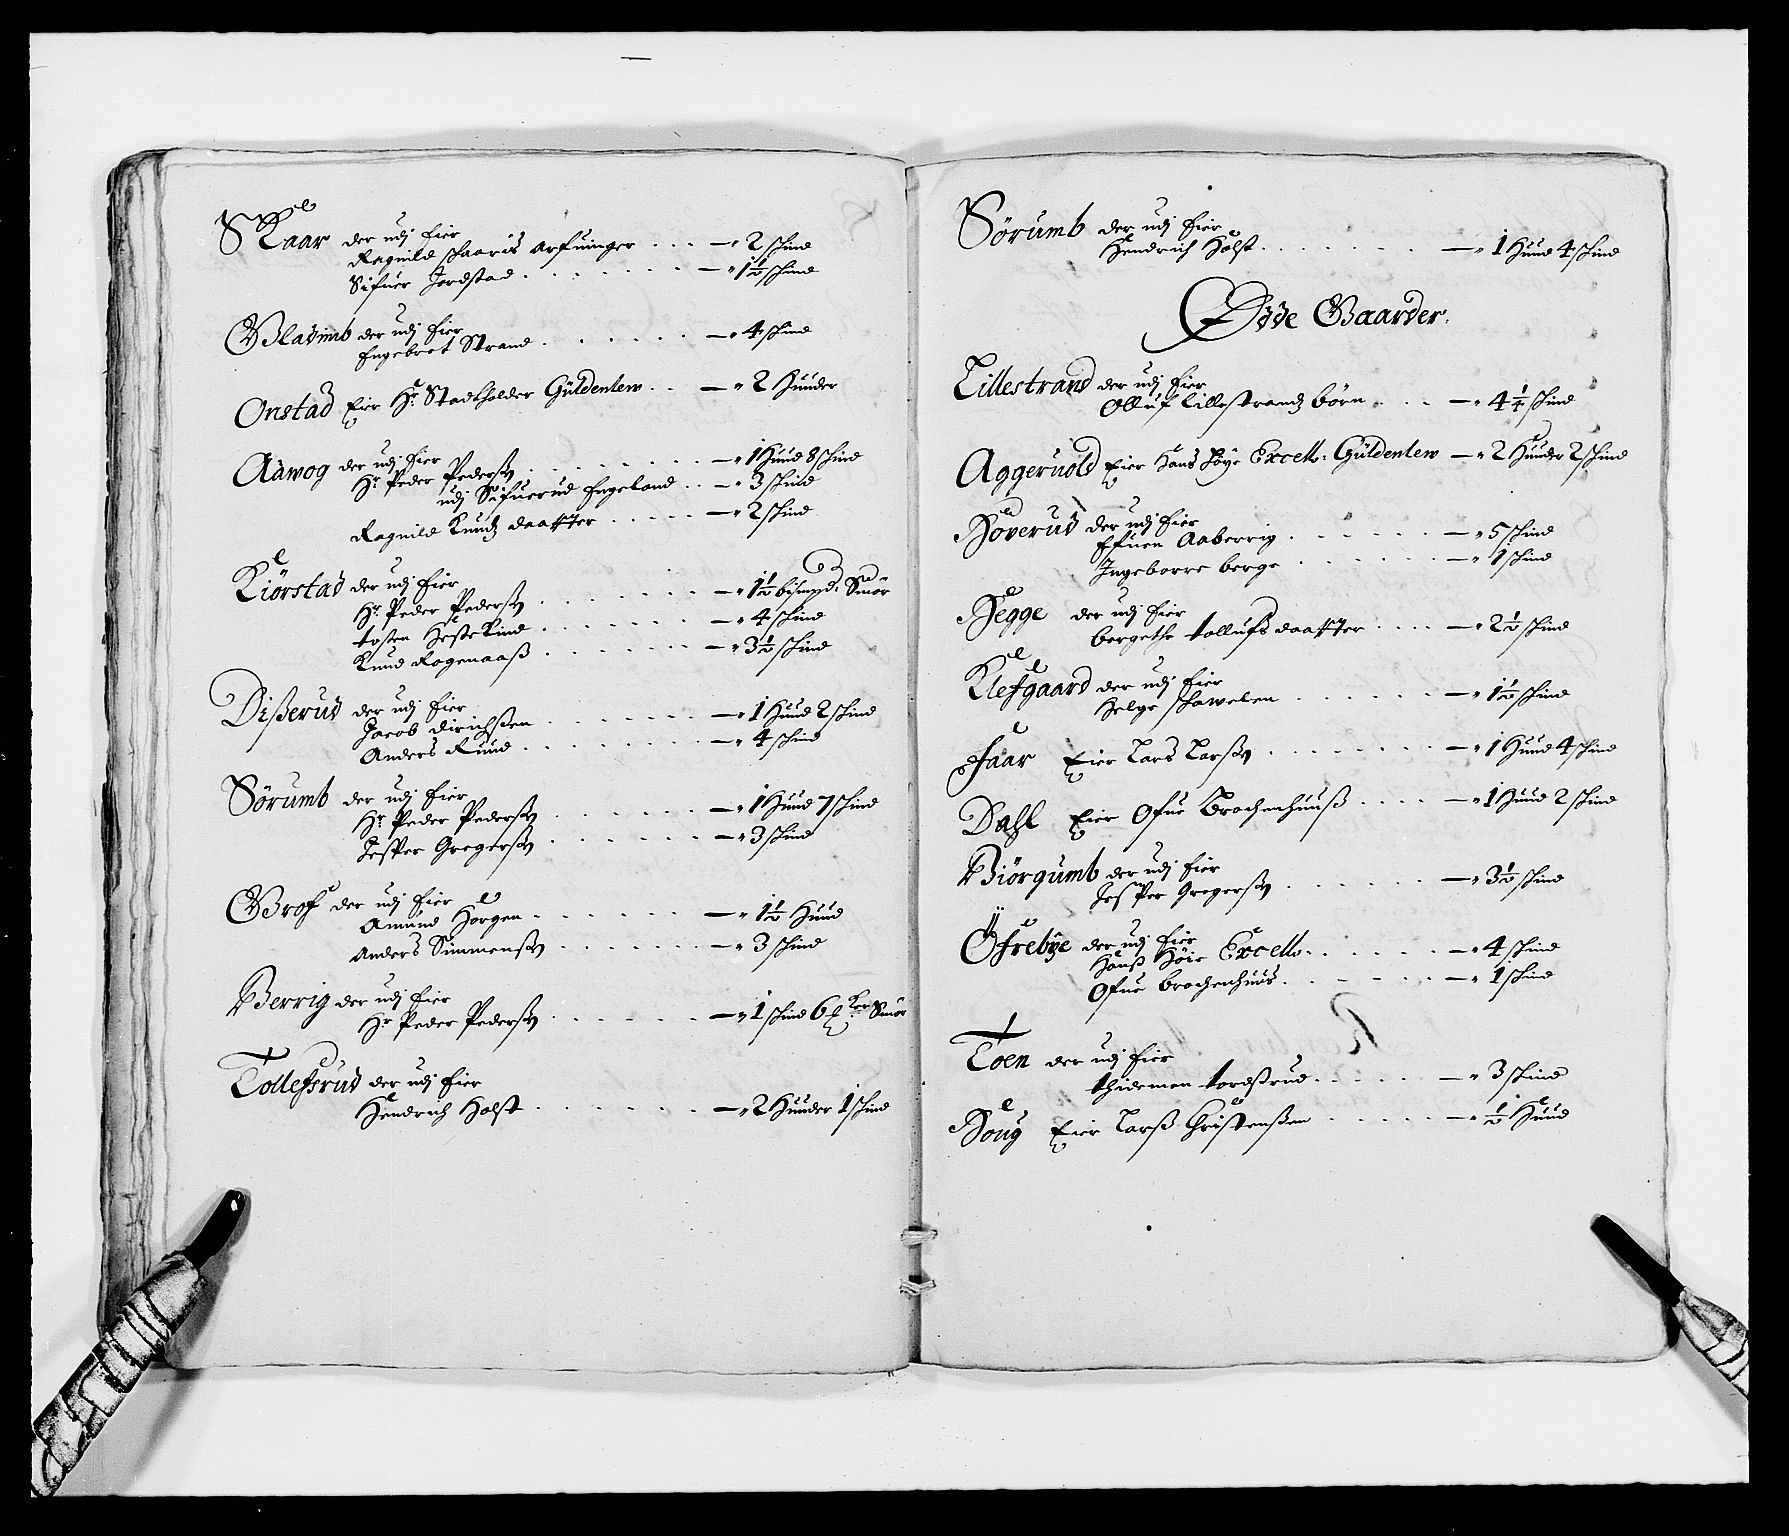 Skaar der udj Eier
Ragnild skaaris arfuinger . . . — „ 2 skind
Sifuer Jordstad . . . . . . . — „ 1½ skind
Gladimb der udj Eier
Engebret Strand . . . . . . — „ 4 skind
Onstad Eier Hr Stadtholder Güldenlew . . — „ 2 Hunder
Aawog der udj Eier
Hr Peder Pederßen . . . . . . . — „ 1 Hund 8 skind
udj Sifuerud Engeland . . — „ 3 skind
Ragnild Knudß daatter . . . . . — „ 2 skind
Kiörstad der udj Eier
Hr Peder Pederßen . . . . . . . — „ 1½ bismpd: Smör
tosten Hestekind . . . . . . — „ 4 skind
Knud Rogenaaß . . . . . . — „ 3½ skind
Dißerud der udj Eier
Jacob dirichßen . . . . . . . — „ 1 Hund 2 skind
Anders Rund . . . . . . . — „ 4 skind
Sörumb der udj Eier
Hr Peder Pederßen . . . . . . — „ 1 Hund 7 skind
Jesper Gregerßen . . . . . . — „ 3 skind
Grof der udj Eier
Amund Horgen . . . . . . . — „ 1½ Hund
Anders Simmenßen . . . . . . — „ 3 skind
Berrig der udj Eier
Hr Peder Pederßen . . . . . . — „ 1 skind 6 Smör
Tollefsrud der udj Eier
Hendrich Holst . . . . . . . — „ 2 Hunder 1 skind
Sörumb der udj Eier
Hendrich Holst . . . . . . . — „ 1 Hund 4 skind
Øde Gaarder.
Lillestrand der udj Eier
Olluf Lillestrandß börn . . . . — „ 4¼ skind
Aggeruold Eier Hans Höye Excell: Güldenlew — „ 2 Hunder 2 skind
Hoverud der udj Eier
Efuen Aaberrig . . . . . . — „ 5 skind
Ingeborre berge . . . . . . — „ 1 skind
Hegge der udj Eier
bergethe tollufs daatter . . . . — „ 2½ skind
Klefgaard der udj Eier
Helge skawelen . . . . . . — „ 1½ skind
Faar Eier Lars Larßen . . . . . . . . — „ 1 Hund 4 skind
Dahl Eier Ofue Brochenhuuß . . . . — „ 1 Hund 2 skind
Biörgumb der udj Eier
Jesper Gregerßen . . . . . . — „ 3½ skind
Öfrebye der udj Eier
Hanß Höie Excell: . . . . . . — „ 4 skind
Ofue brochenhuus . . . . . . — „ 1 skind
Toen der udj Eier
thideman tordßrud . . . . . — „ 3 skind
Houg Eier Larß Christenßen . . . . . — „ ½ Hund